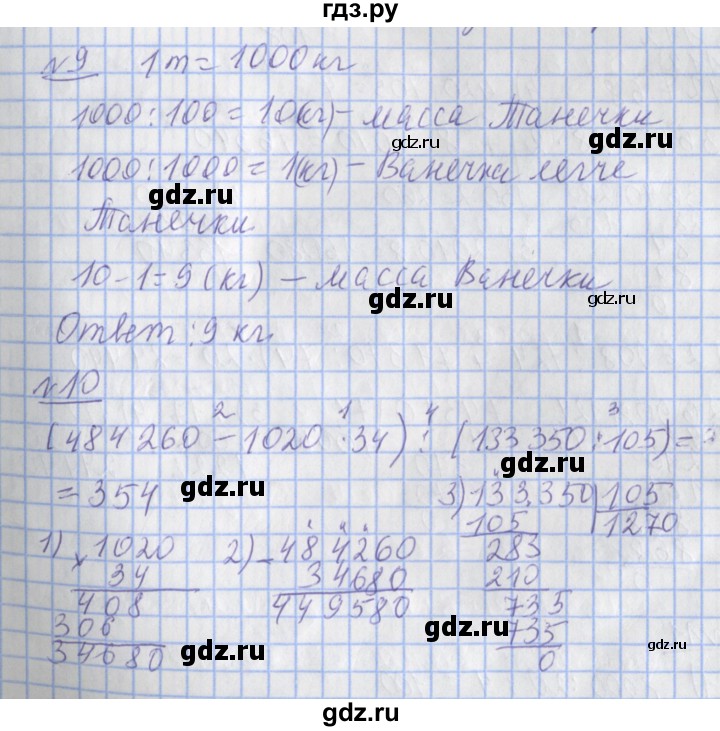 гдз.ру
№9 1т = 1000 кг
1000:100 = 10(кг) – масса Танечки
gdz.ru
gdz.ru
1000:1000 = 1(кг) – Ванечка легче
gdz.ru
gdz.ru
Танечки
10-1=9 (кг) – масса Ванечки
gdz.ru
gdz.ru
Ответ: 9 кг.
№10
gdz.ru
2 1 4 3
(484260 – 1020 · 34) : (133350 : 105) =
= 354
gdz.ru
gdz.ru
3) 133350 105
105 1270
283
210
735
735
0
1) × 1020
34
408
306
34680
2) – 484260
34680
449580
gdz.ru
gdz.ru
gdz.ru
gdz.ru